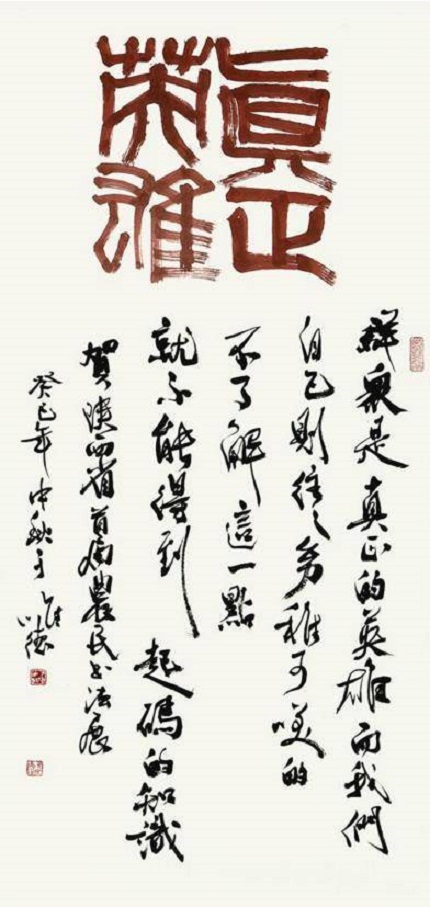 眞正
英雄
群衆是真正的英雄而我們
自己則往々幼稚可笑的
不了解這一點
就不能得到 起碼的知識
賀陝西省首届農民书法展
癸巳年中秋于